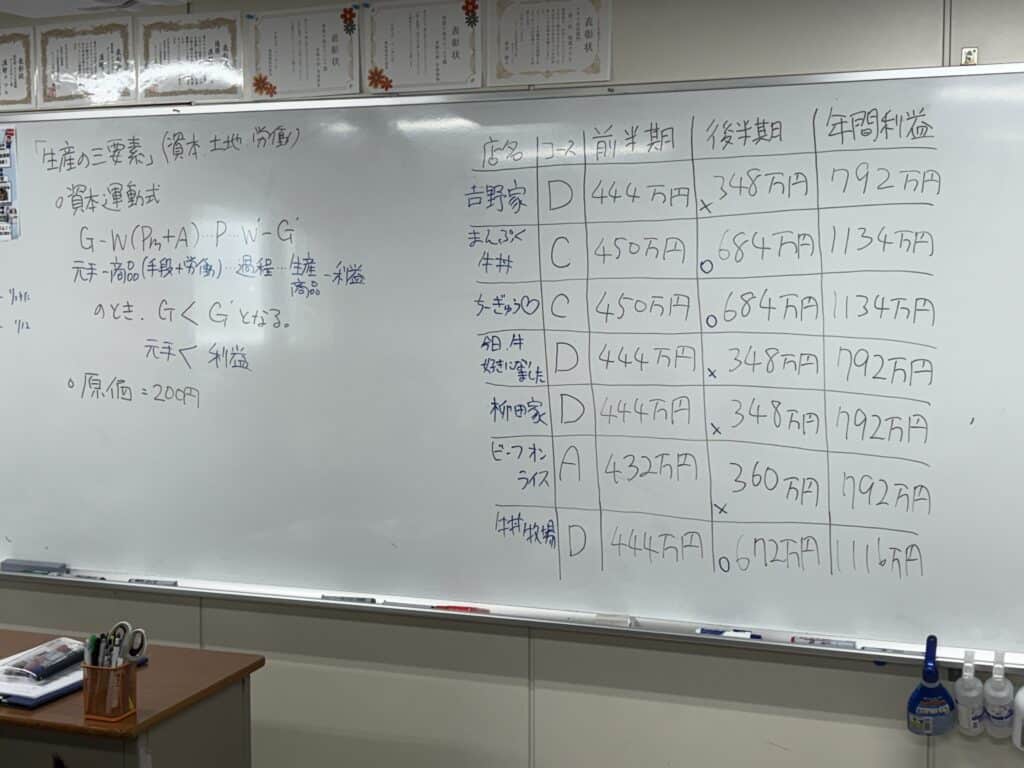 表彰状
表彰状
表彰状
「生産の三要素」(資本.土地.労働)
○資本運動式
G-W(Pm+A)…P…W´-G´
元手-商品(手段+労働)…過程…生産商品-利益
のとき、G<G´となる。
元手<利益
○原価=200円
店名 コース 前半期 後半期 年間利益
吉野家 D 444万円 ×348万円 792万円
まんぷく牛丼 C 450万円 ○684万円 1134万円
ちーぎゅう♡ C 450万円 ○684万円 1134万円
今日、牛好きになりました D 444万円 ×348万円 792万円
柳田家 D 444万円 ×348万円 792万円
ビーフオンライス A 432万円 ×360万円 792万円
牛丼牧場 D 444万円 ○672万円 1116万円